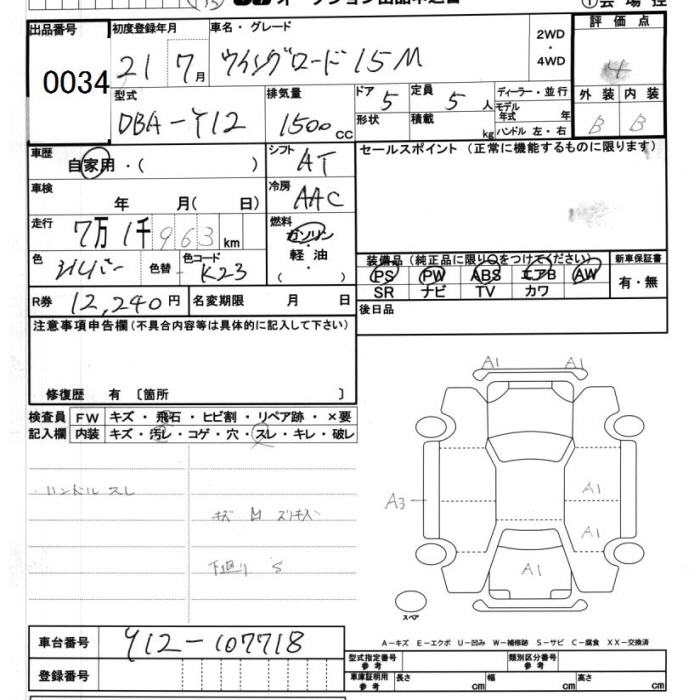 オークション出品申込書
①会場控
出品番号 初度登録年月 車名・グレード 2WD ・ 4WD 評価点
0034 21 7月 ウイングロード 15M 4
型式 排気量 ドア 5 定員 5人 ディーラー・並行 外装 内装
DBA-Y12 1500cc 形状 積載 kg モデル年式 年 B B
ハンドル 左・右
車歴 自家用・( ) シフト AT セールスポイント (正常に機能するものに限ります)
車検 年 月( 日) 冷房 AAC
走行 7万1千963km 燃料 ガソリン 軽油 ・( )
色 シルバー 色替 色コード K23
装備品 (純正品に限り○をつけてください) 新車保証書
PS PW ABS エアB AW 有・無
SR ナビ TV カワ
R券 12,240円 名変期限 月 日 後日品
注意事項申告欄(不具合内容等は具体的に記入して下さい)
修復歴 有 〔箇所 〕
検査員 FW キズ・飛石・ヒビ割・リペア跡・×要
記入欄 内装 キズ・汚レ・コゲ・穴・スレ・キレ・破レ
・ハンドルスレ
キズ 凹 スリキズ
下廻り S
A1 A1
A1
A3
A1
A1
スペア
A-キズ E-エクボ U-凹み W-補修跡 S-サビ C-腐食 XX-交換済
車台番号 Y12-107718
型式指定番号参考 類別区分番号参考
登録番号
車庫証明用参考 長さ cm 幅 cm 高さ cm